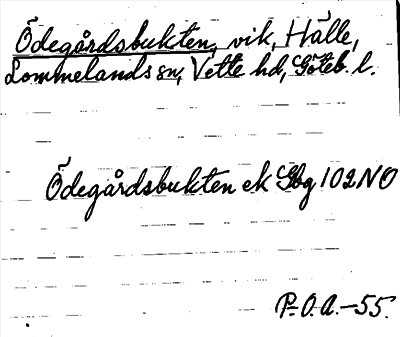 Ödegårdsbukten, vik, Hälle,
Lommelands sn, Vette hd, Göteb. l.
Ödegårdsbukten ek Gbg 102 NO
P.O.A.-55.